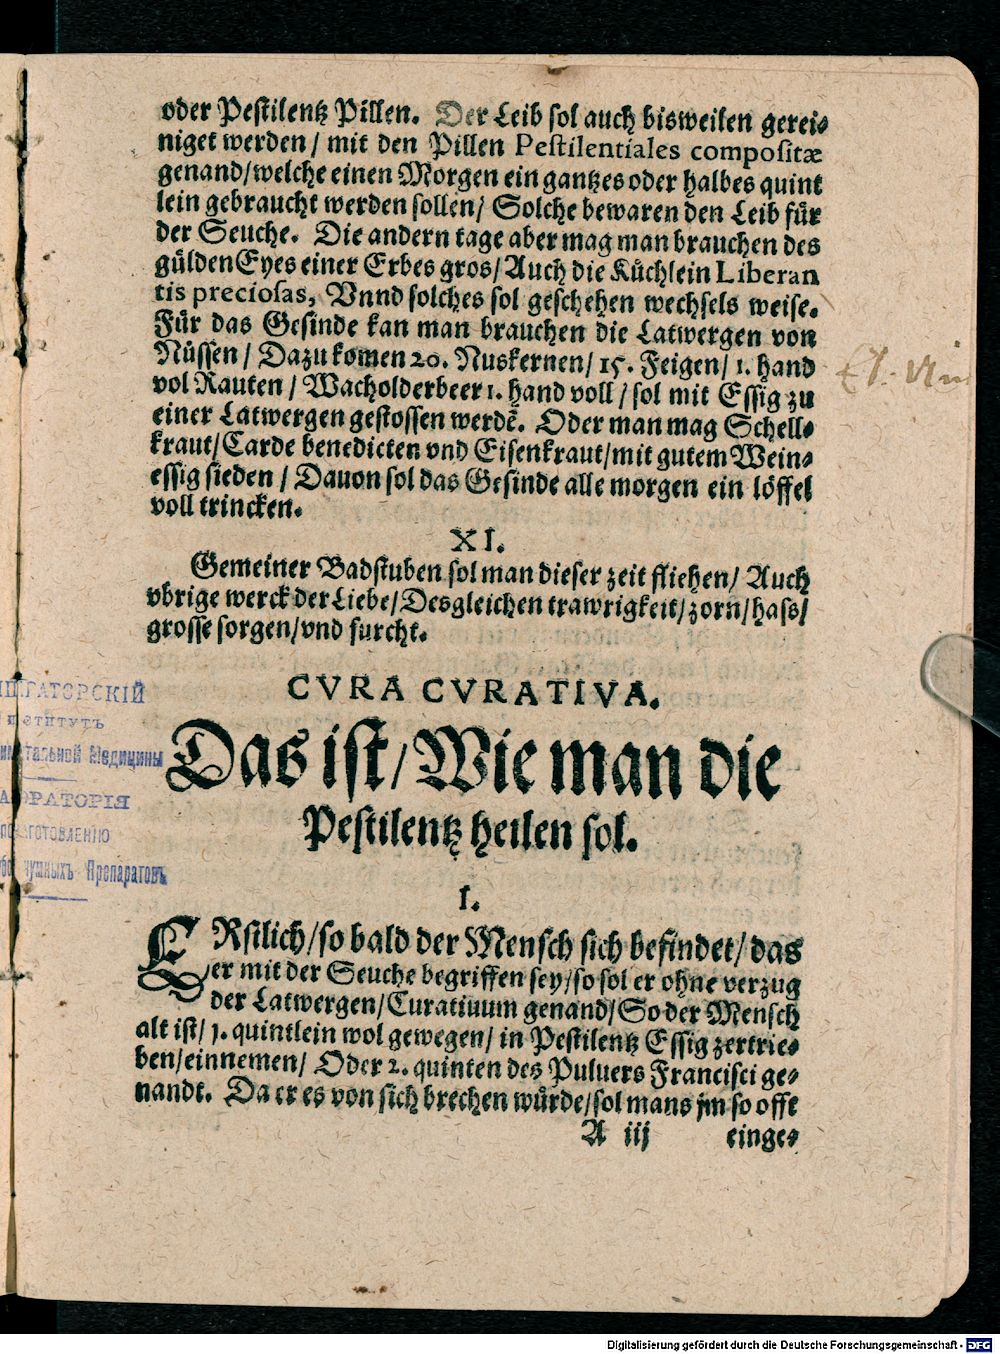 oder Pestilentz Pillen. Der Leib sol auch bisweilen gerei⸗
niget werden / mit den Pillen Pestilentiales compositæ
genand/welche einen Morgen ein gantzes oder halbes quint
lein gebraucht werden sollen/ Solche bewaren den Leib für
der Seuche. Die andern tage aber mag man brauchen des
gülden Eyes einer Erbes gros/ Auch die Küchlein Liberan
tis preciosas, Vnnd solches sol geschehen wechsels weise.
Für das Gesinde kan man brauchen die Latwergen von
Nüssen / Dazu komen 20. Nuskernen/ 15. Feigen/ 1. hand
vol Rauten / Wacholderbeer 1. hand voll / sol mit Essig zu
einer Latwergen gestossen werdē. Oder man mag Schell⸗
kraut/ Carde benedicten vnd Eisenkraut/mit gutem Wein⸗
essig sieden / Dauon sol das Gesinde alle morgen ein löffel
voll trincken.
XI.
Gemeiner Badstuben sol man dieser zeit fliehen/ Auch
vbrige werck der Liebe/ Desgleichen trawrigkeit/ zorn/ hass/
grosse sorgen/vnd furcht.
CVRA CVRATIVA.
Das ist/ Wie man die
Pestilentz heilen sol.
I.
ERstlich/so bald der Mensch sich befindet/ das
er mit der Seuche begriffen sey/so sol er ohne verzug
der Latwergen/ Curatiuum genand/ So der Mensch
alt ist/ 1. quintlein wol gewegen/ in Pestilentz Essig zertrie⸗
ben/einnemen/ Oder 2. quinten des Puluers Francisci ge⸗
nandt. Da er es von sich brechen würde/sol mans jm so offt
A iij einge⸗
ИМПЕРАТОРСКІЙ
ИНСТИТУТЪ
Медицины
ЛАБОРАТОРІЯ
ПО ПРИГОТОВЛЕНІЮ
чумныхъ Препаратовъ
Digitalisierung gefördert durch die Deutsche Forschungsgemeinschaft - DFG